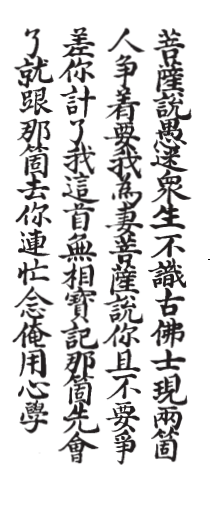 菩薩説愚迷衆生不識古佛士現兩箇
人争着要我為妻菩薩説你且不要争
差你計了我這首無相寶記那箇先會
了就跟那箇去你連忙念俺用心學